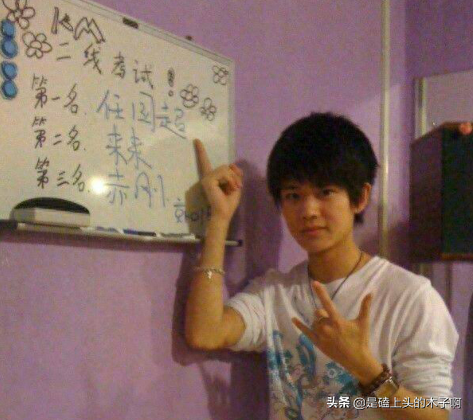 二线考试!
第一名. 任国超
第二名. 未来
第三名. 赤刚
头条 @是磕上头的木子啊